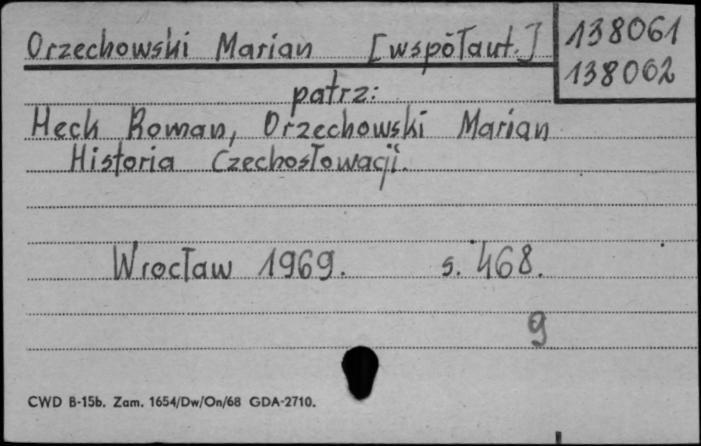 Orzechowski Marian [współaut.]
138061
138062
patrz:
Heck Roman, Orzechowski Marian
Historia Czechosłowacji.
Wrocław 1969. s. 468.
9
CWD B-15b. Zam. 1654/Dw/On/68 GDA-2710.